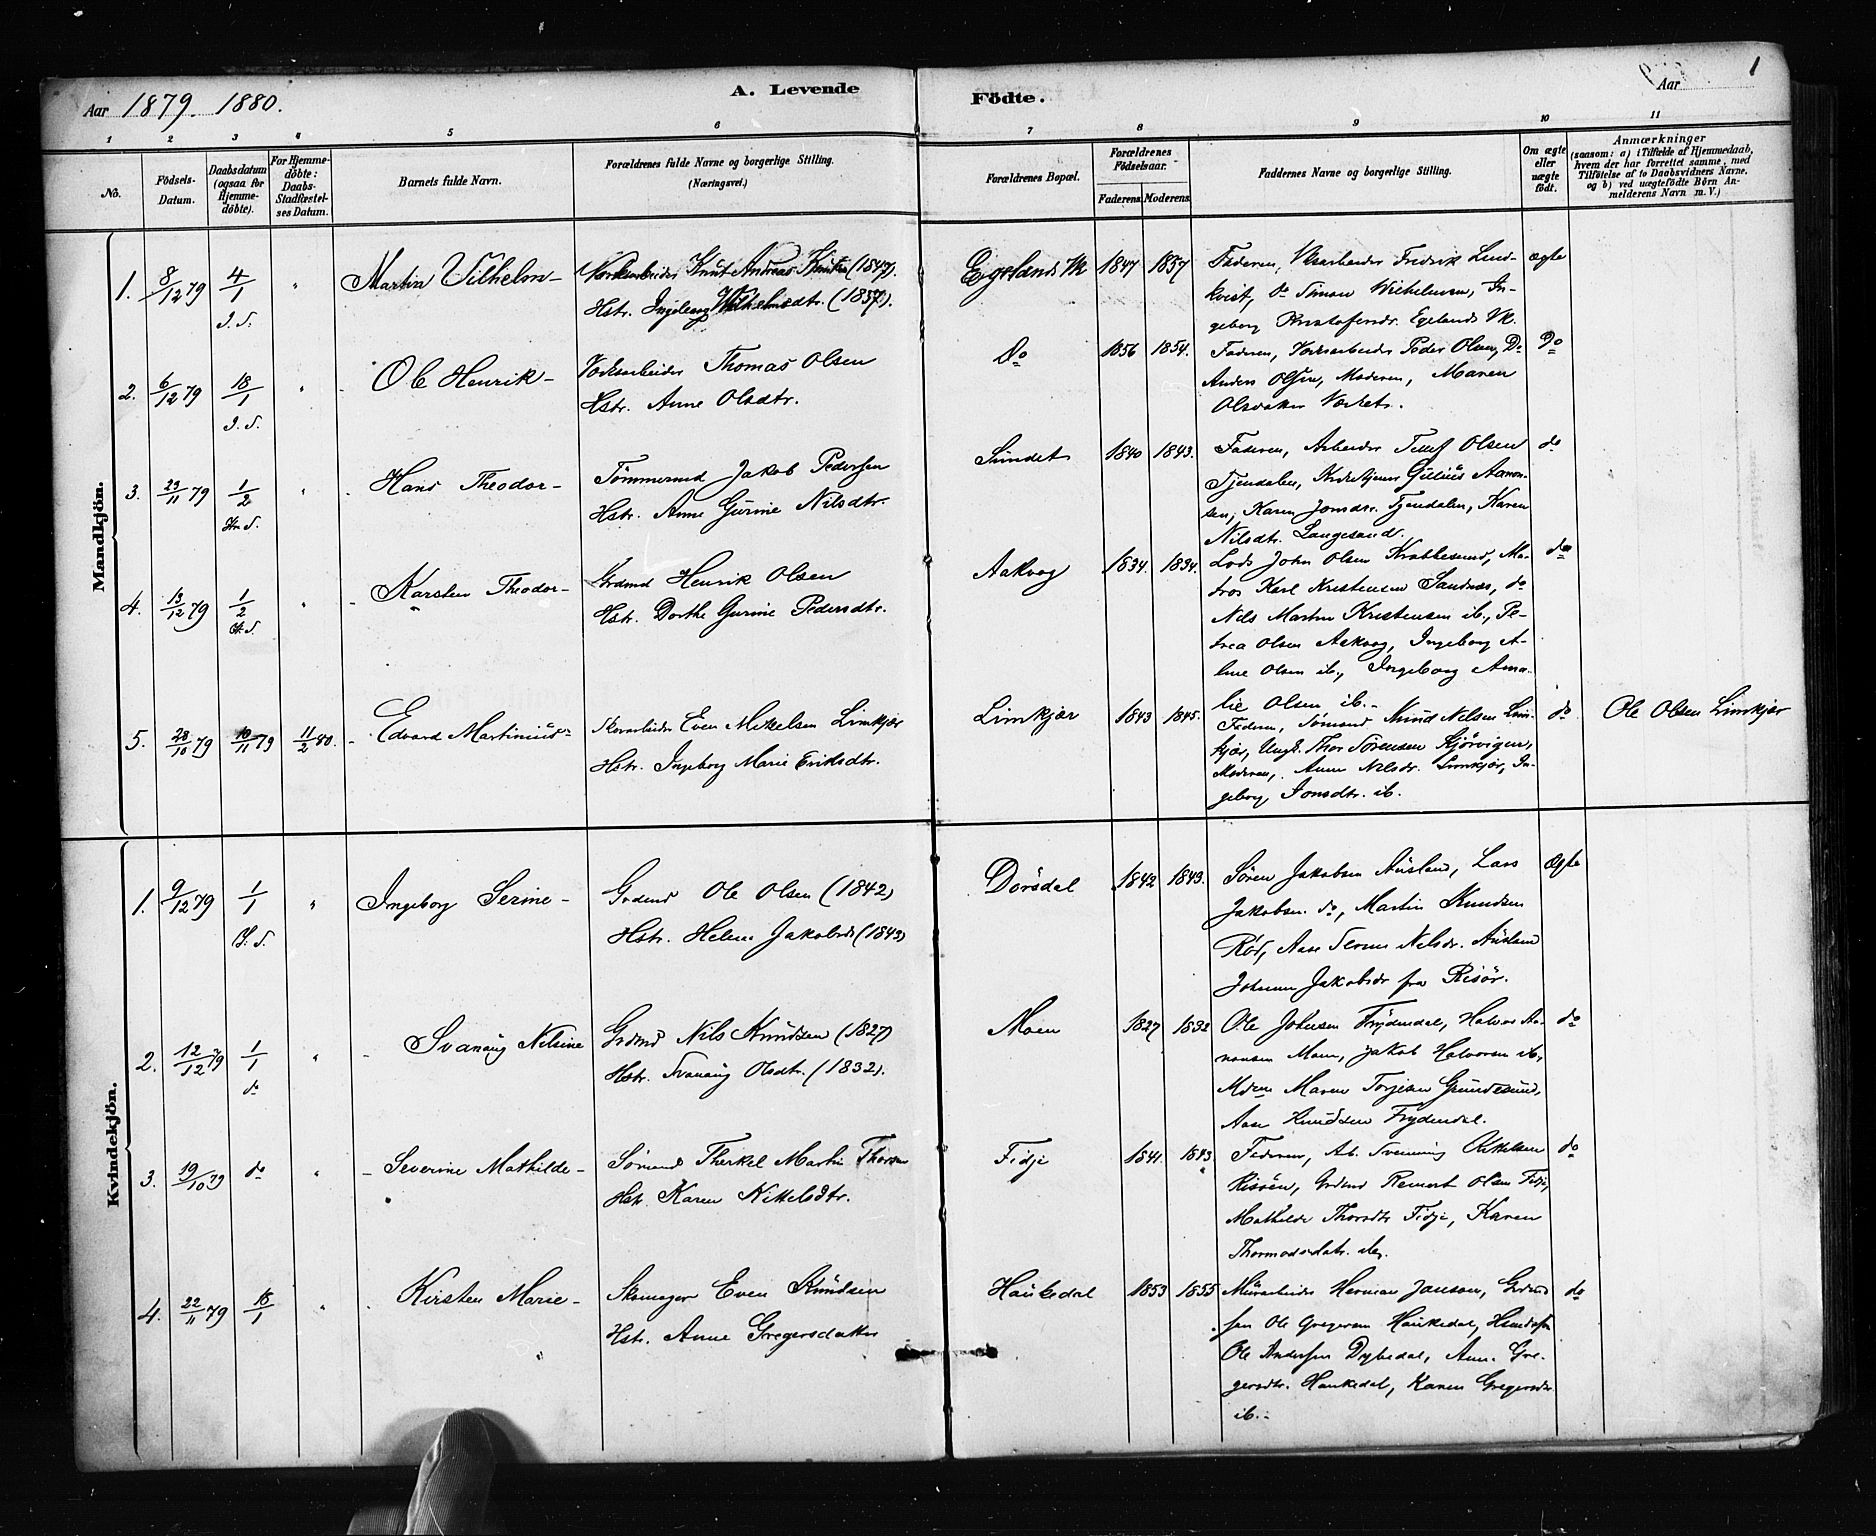 Aar 1879. 1880.
A. Levende
Födte.
Aar
1
1 2 3 4 5 6 7 8 9 10 11
No.
Födsels-
Datum.
Daabsdatum
(ogsaa for
Hjemme-
döbte).
For Hjemme-
döbte:
Daabs-
Stadfæstel-
ses Datum.
Barnets fulde Navn.
Forældrenes fulde Navne og borgerlige Stilling.
(Næringsvei.)
Forældrenes Bopæl.
Forældrenes
Födselsaar.
Faderens. Moderens.
Faddernes Navne og borgerlige Stilling.
Om ægte
eller
uægte
födt.
Anmærkninger
(saasom: a) i Tilfælde af Hjemmedaab,
hvem der har forrettet samme, med
Tilföielse af to Daabsvidners Navne.
og b) ved uægtefödte Börn An-
melderens Navn m. V.)
Mandkjön.
1. 8/12 79 4/1 " Martin Vilhelm - Knut Andreas (1847).
Hstr. Ingeborg (1857).
Egelands Vk 1847 1857
Faderen, Fredrik Lind-
kvist, do Simon In-
geborg Kristofersdr. Egelands Vk.
ægte
2. 6/12 79 18/1 " Ole Henrik - Værksarbeider Thomas Olsen
Hstr. Anne Olsdtr.
Do 1856 1854.
Faderen, Værksarbeider Peder Olsen, Do
Anders Olsen, Moderen, Maren
Olsdatter Værket.
Do
3. 23/11 79 1/2 " Hans Theodor - Tömmermd Jakob Pedersen
Hstr. Anne Gurine Nilsdtr.
Sundet 1840 1843.
Faderen, Arbeider Tellef Olsen
Tjendalen, Gulius Aanon-
sen, Karen Jonsdr. Tjendalen, Karen
Nilsdtr. Langesand.
do
4. 13/12 79 1/2 " Karsten Theodor - Grdmd Henrik Olsen
Hstr. Dorthe Gurine Pedersdtr.
Aakvog 1834. 1834.
Lods John Olsen Krabbesund, Ma-
tros Karl Kristensen Sandnæs, do
Nils Martin Kristensen ib., Pe-
trea Olsen Aakvog, Ingeborg A-
line Olsen ib., Ingeborg Ama-
lie Olsen ib. -
do
5. 28/10 79 10/11 79 11/2 80. - Edvard Martinius - Skovarbeider Even Mikkelsen Limkjær
Hstr. Ingeborg Marie Eriksdtr.
Limkjær 1843 1845.
Faderen, Sömand Knud Nelsen Lim-
kjær, Ungk. Thor Sörensen Kjörvigen,
Moderen, Anne Nelsdr. Limkjær, In-
geborg Jonsdtr. ib.
do
Ole Olsen Limkjær
Kvindekjön.
1. 9/12 79 1/1 " Ingeborg Serine - Grdmd Ole Olsen (1842)
Hstr. Helene Jakobsdr (1843)
Dörsdal 1842 1843.
Sören Jakobsen Ausland, Lars
Jakobsen do, Martin Knudsen
Röd, Aase Nelsdr. Ausland
Johanne Jakobsdr fra Risör.
Ægte
2. 12/12 79 1/1 do " - Svanaug Nelsine Grdmd Nils Knudsen (1827)
Hstr. Svanaug Olsdtr. (1832).
Moen 1827 1832
Ole Johnsen Frydendal, Halvor Aa-
nonsen Moen, Jakob Halvorsen ib.,
Maren Torjesen Grundesund,
Aase Knudsen Frydendal.
do
3. 19/10 79 do " - Severine Mathilde - Sömand Therkel Martin Thorsen
Hstr. Karen Nikkelsdtr.
Fidje 1841. 1843.
Faderen, Ab. Svenning
Risöen, Grdmd Remert Olsen Fidje,
Mathilde Thorsdtr Fidje, Karen
Thormodsdatr. ib.
do
4. 22/11 79 18/1 " Kirsten Marie - Skomager Even Knudsen
Hstr. Anne Gregersdatter
Haukedal 1853 1855
Murarbeider Herman Jansen, Grdmd
søn Ole Gregersen Haukedal, Husmdssøn
Ole Andersen Dybedal, Anne Gre-
gersdtr. Haukedal, Karen Gregersdr
ib. -
do